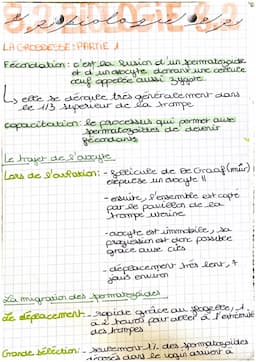 LA GROSSESSE : PARTIE 1
Fécondation : c'est la fusion d'un spermatozoïde
et d'un ovocyte donnant une cellule
œuf appelée aussi zygote
↳ elle se déroule très généralement dans
le 1/3 supérieur de la trompe
Capacitation : le processus qui permet aux
spermatozoïdes de devenir
fécondants
Le trajet de l'ovocyte
Lors de l'ovulation : - follicule de De Graaf (mûr)
expulse un ovocyte II
- ensuite, l'ensemble est capté
par le pavillon de la
trompe utérine
- ovocyte est immobile, sa
progression est donc possible
grâce aux cils
- déplacement très lent, 4
jours environ
La migration des spermatozoïdes
Le déplacement - rapide grâce au flagelle, 1
à 2 heures pour aller à l'extrémité
des trompes
Grande sélection : - seulement 1% des spermatozoïdes
déposés dans le vagin assurent